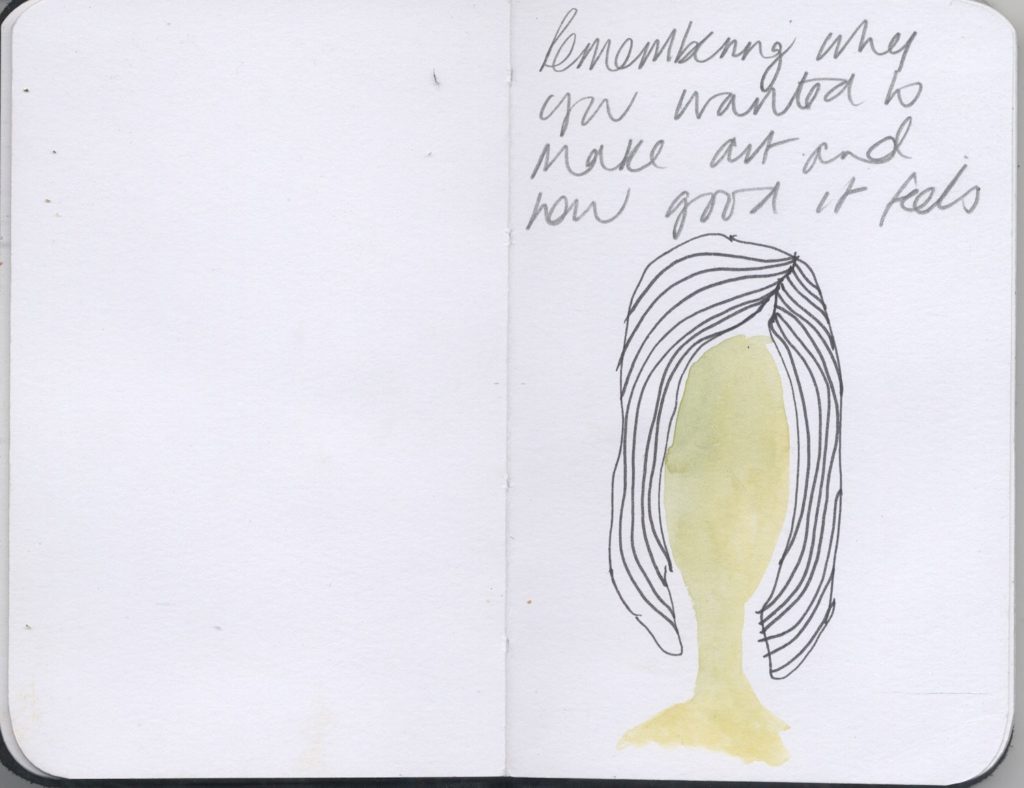 Remembering why
you wanted to
make art and
how good it feels